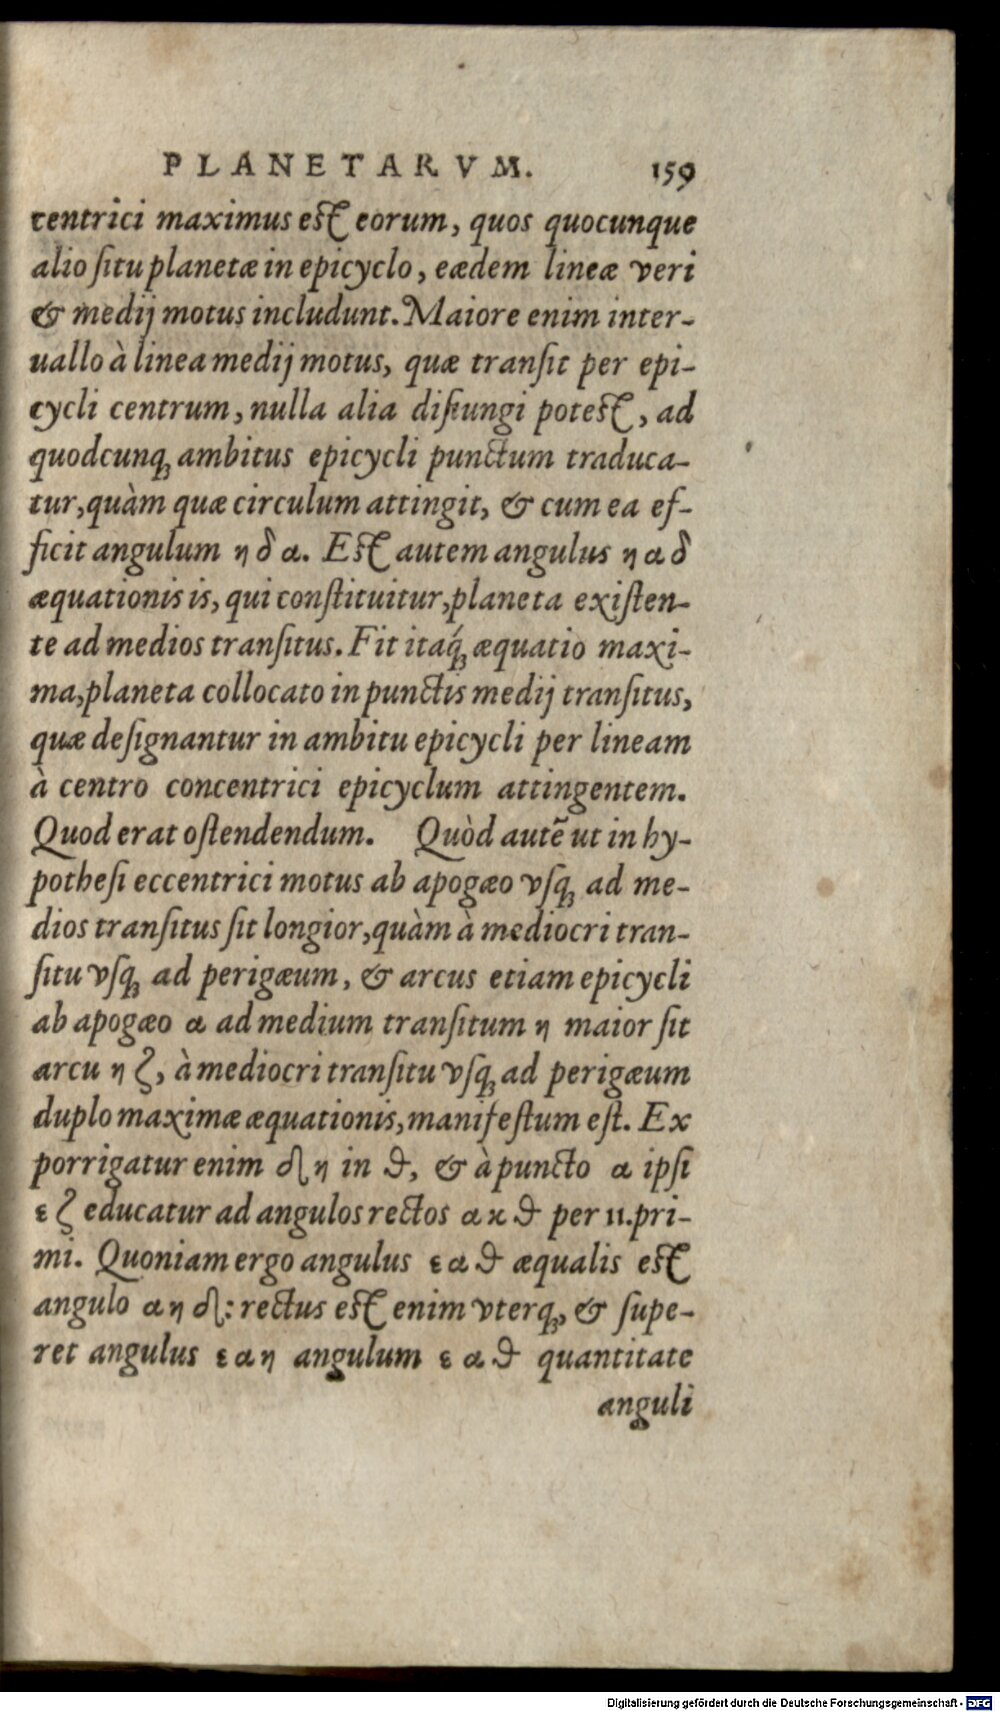 PLANETARVM. 159
centrici maximus est eorum, quos quocunque
alio ſitu planetæ in epicyclo, eædem lineæ veri
& medij motus includunt. Maiore enim inter-
uallo à linea medij motus, quæ tranſit per epi-
cycli centrum, nulla alia diſiungi potest, ad
quodcunqꝫ ambitus epicycli punctum traduca-
tur, quàm quæ circulum attingit, & cum ea ef-
ficit angulum η δ α. Est autem angulus η α δ
æquationis is, qui conſtituitur, planeta exiſten-
te ad medios tranſitus. Fit itaq́ꝫ æquatio maxi-
ma, planeta collocato in punctis medij tranſitus,
quæ deſignantur in ambitu epicycli per lineam
à centro concentrici epicyclum attingentem.
Quod erat oſtendendum. Quòd autē ut in hy-
potheſi eccentrici motus ab apogæo vſqꝫ ad me-
dios tranſitus ſit longior, quàm à mediocri tran-
ſitu vſqꝫ ad perigæum, & arcus etiam epicycli
ab apogæo α ad medium tranſitum η maior ſit
arcu η ζ, à mediocri tranſitu vſqꝫ ad perigæum
duplo maximæ æquationis, manifeſtum eſt. Ex
porrigatur enim δ η in ϑ, & à puncto α ipſi
ε ζ educatur ad angulos rectos α κ ϑ per 11. pri-
mi. Quoniam ergo angulus ε α ϑ æqualis est
angulo α η δ: rectus est enim vterqꝫ, & ſupe-
ret angulus ε α η angulum ε α ϑ quantitate
anguli
Digitalisierung gefördert durch die Deutsche Forschungsgemeinschaft - DFG